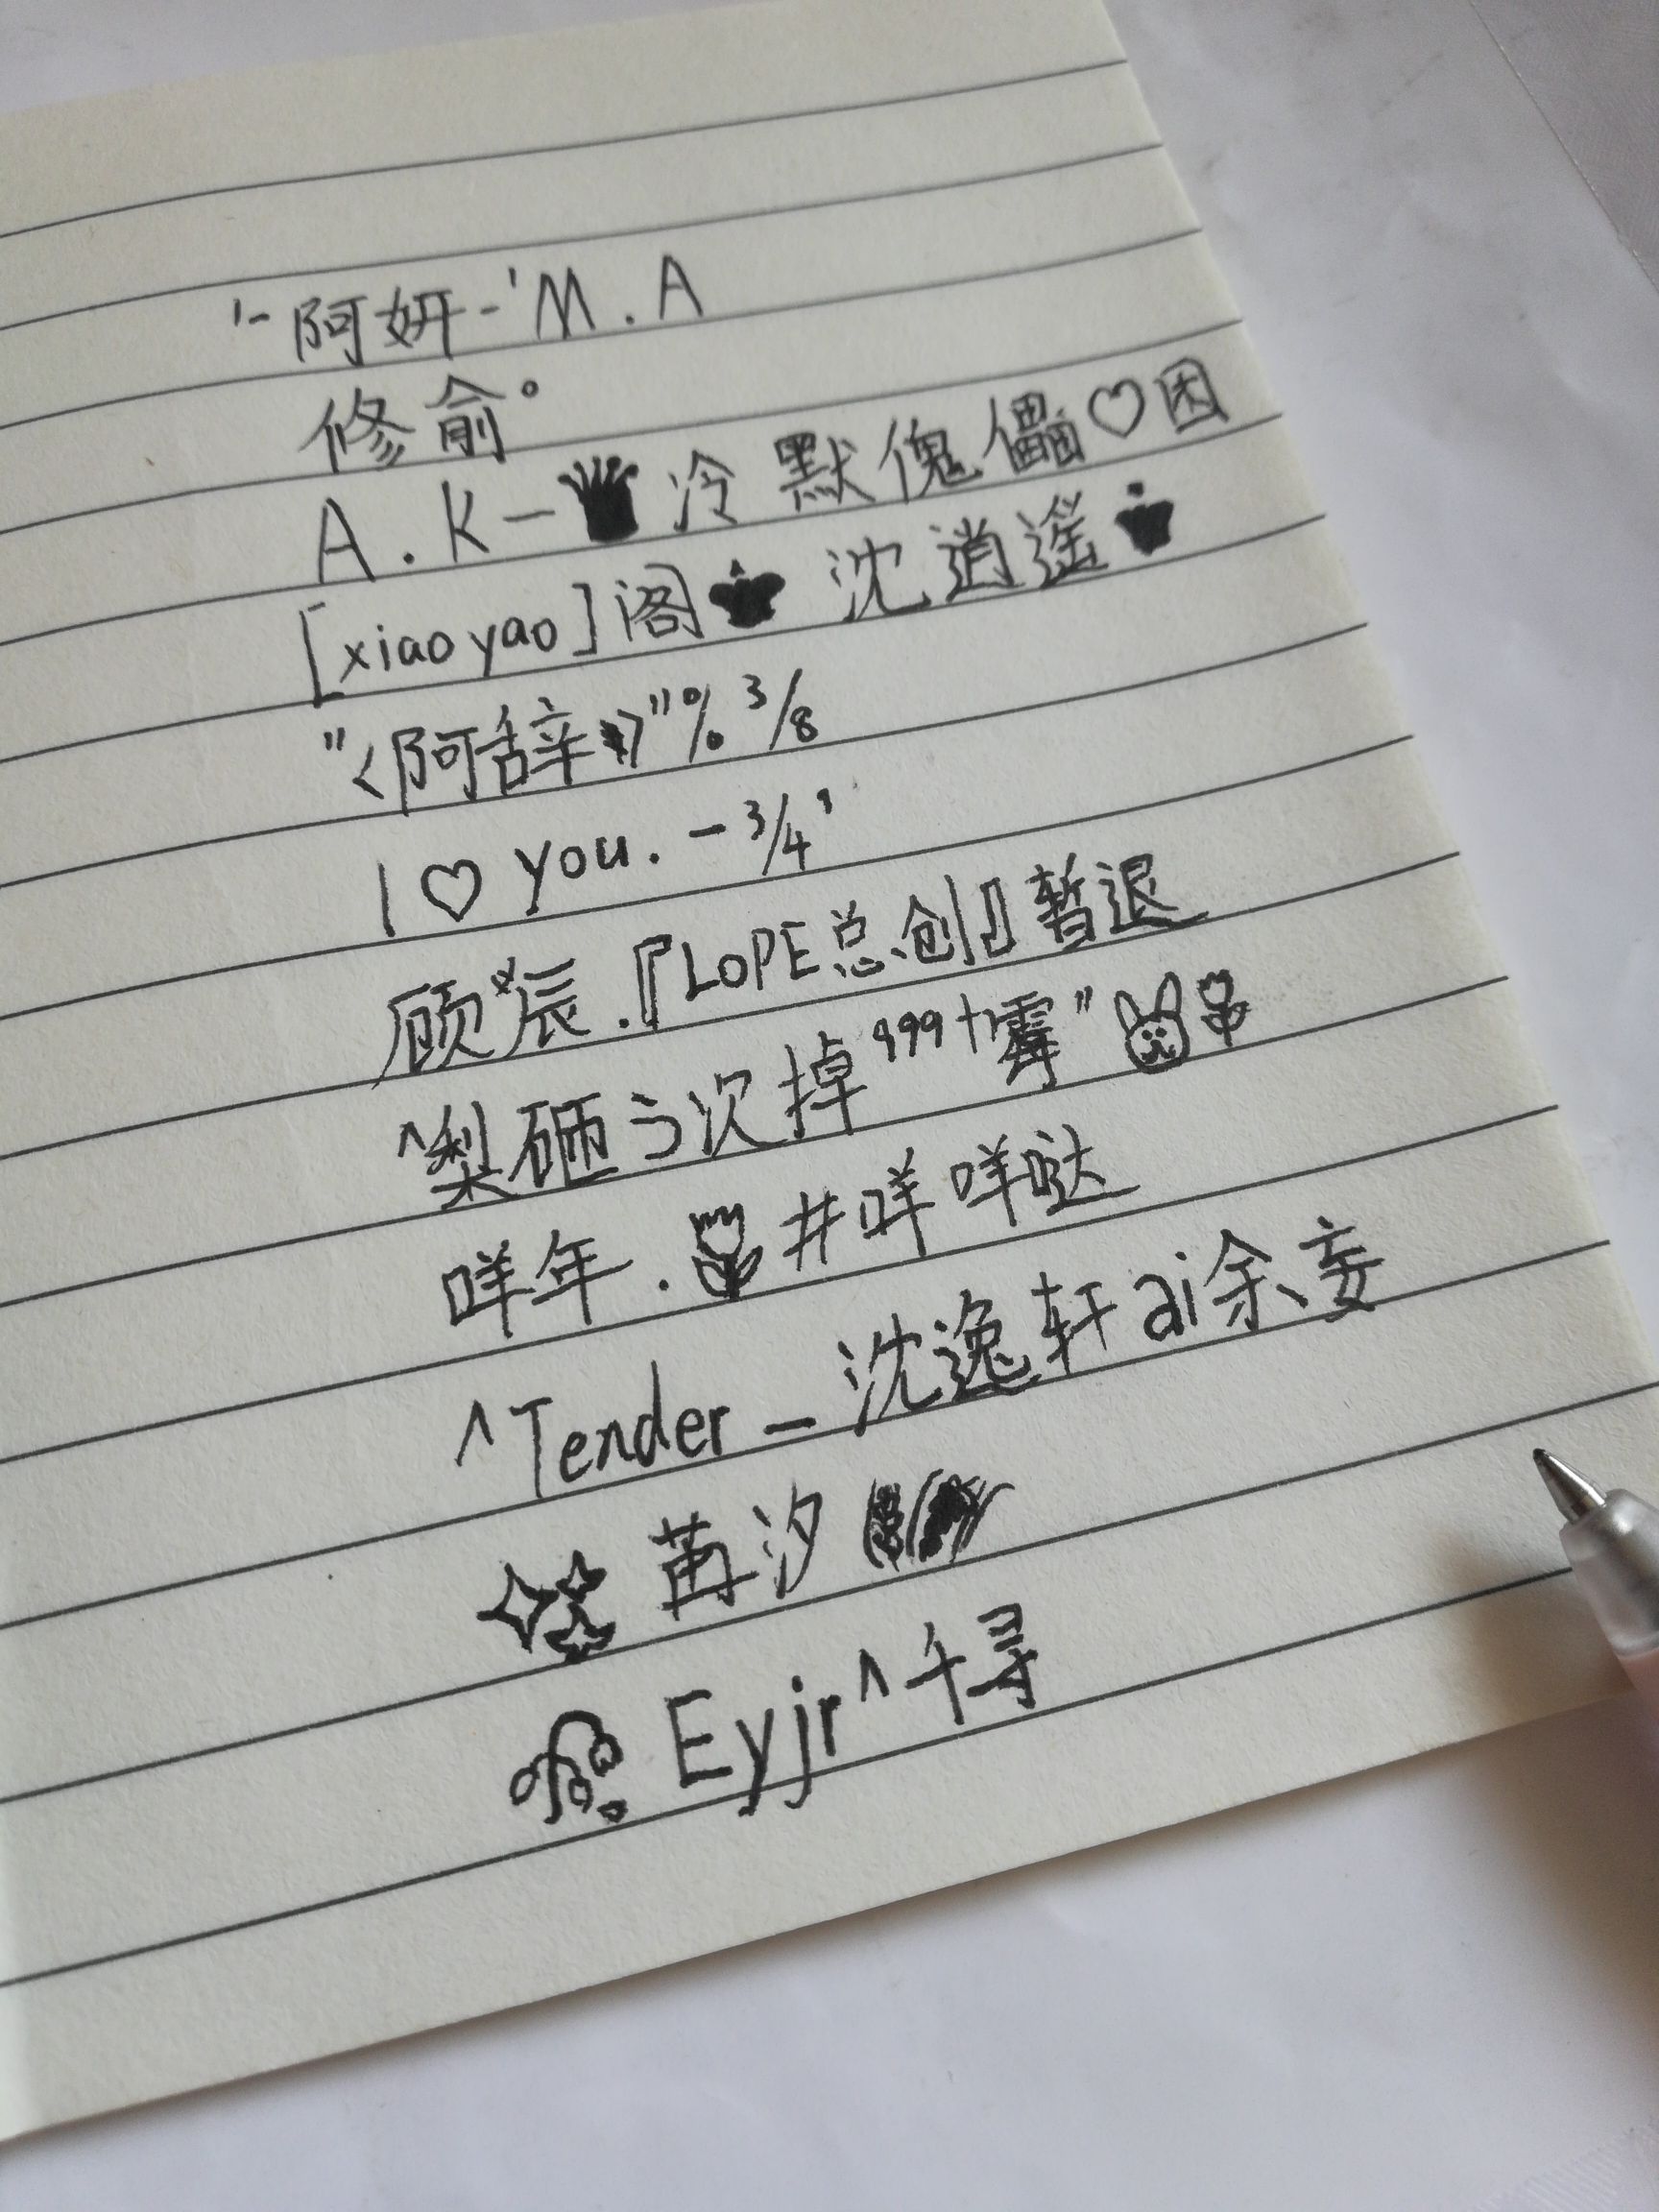 '-阿妍-'M.A
修俞°
A.K-冷默傀儡♡困
[xiaoyao]阁 沈逍遥
"<阿辞》"% 3/8
I♡you.-3/4'
顾*辰.『LOPE总创』暂退
^梨砸う次掉"999+霉"
咩年.#咩咩哒
^Tender_沈逸轩ai余妄
苒汐
Eyjr^千寻